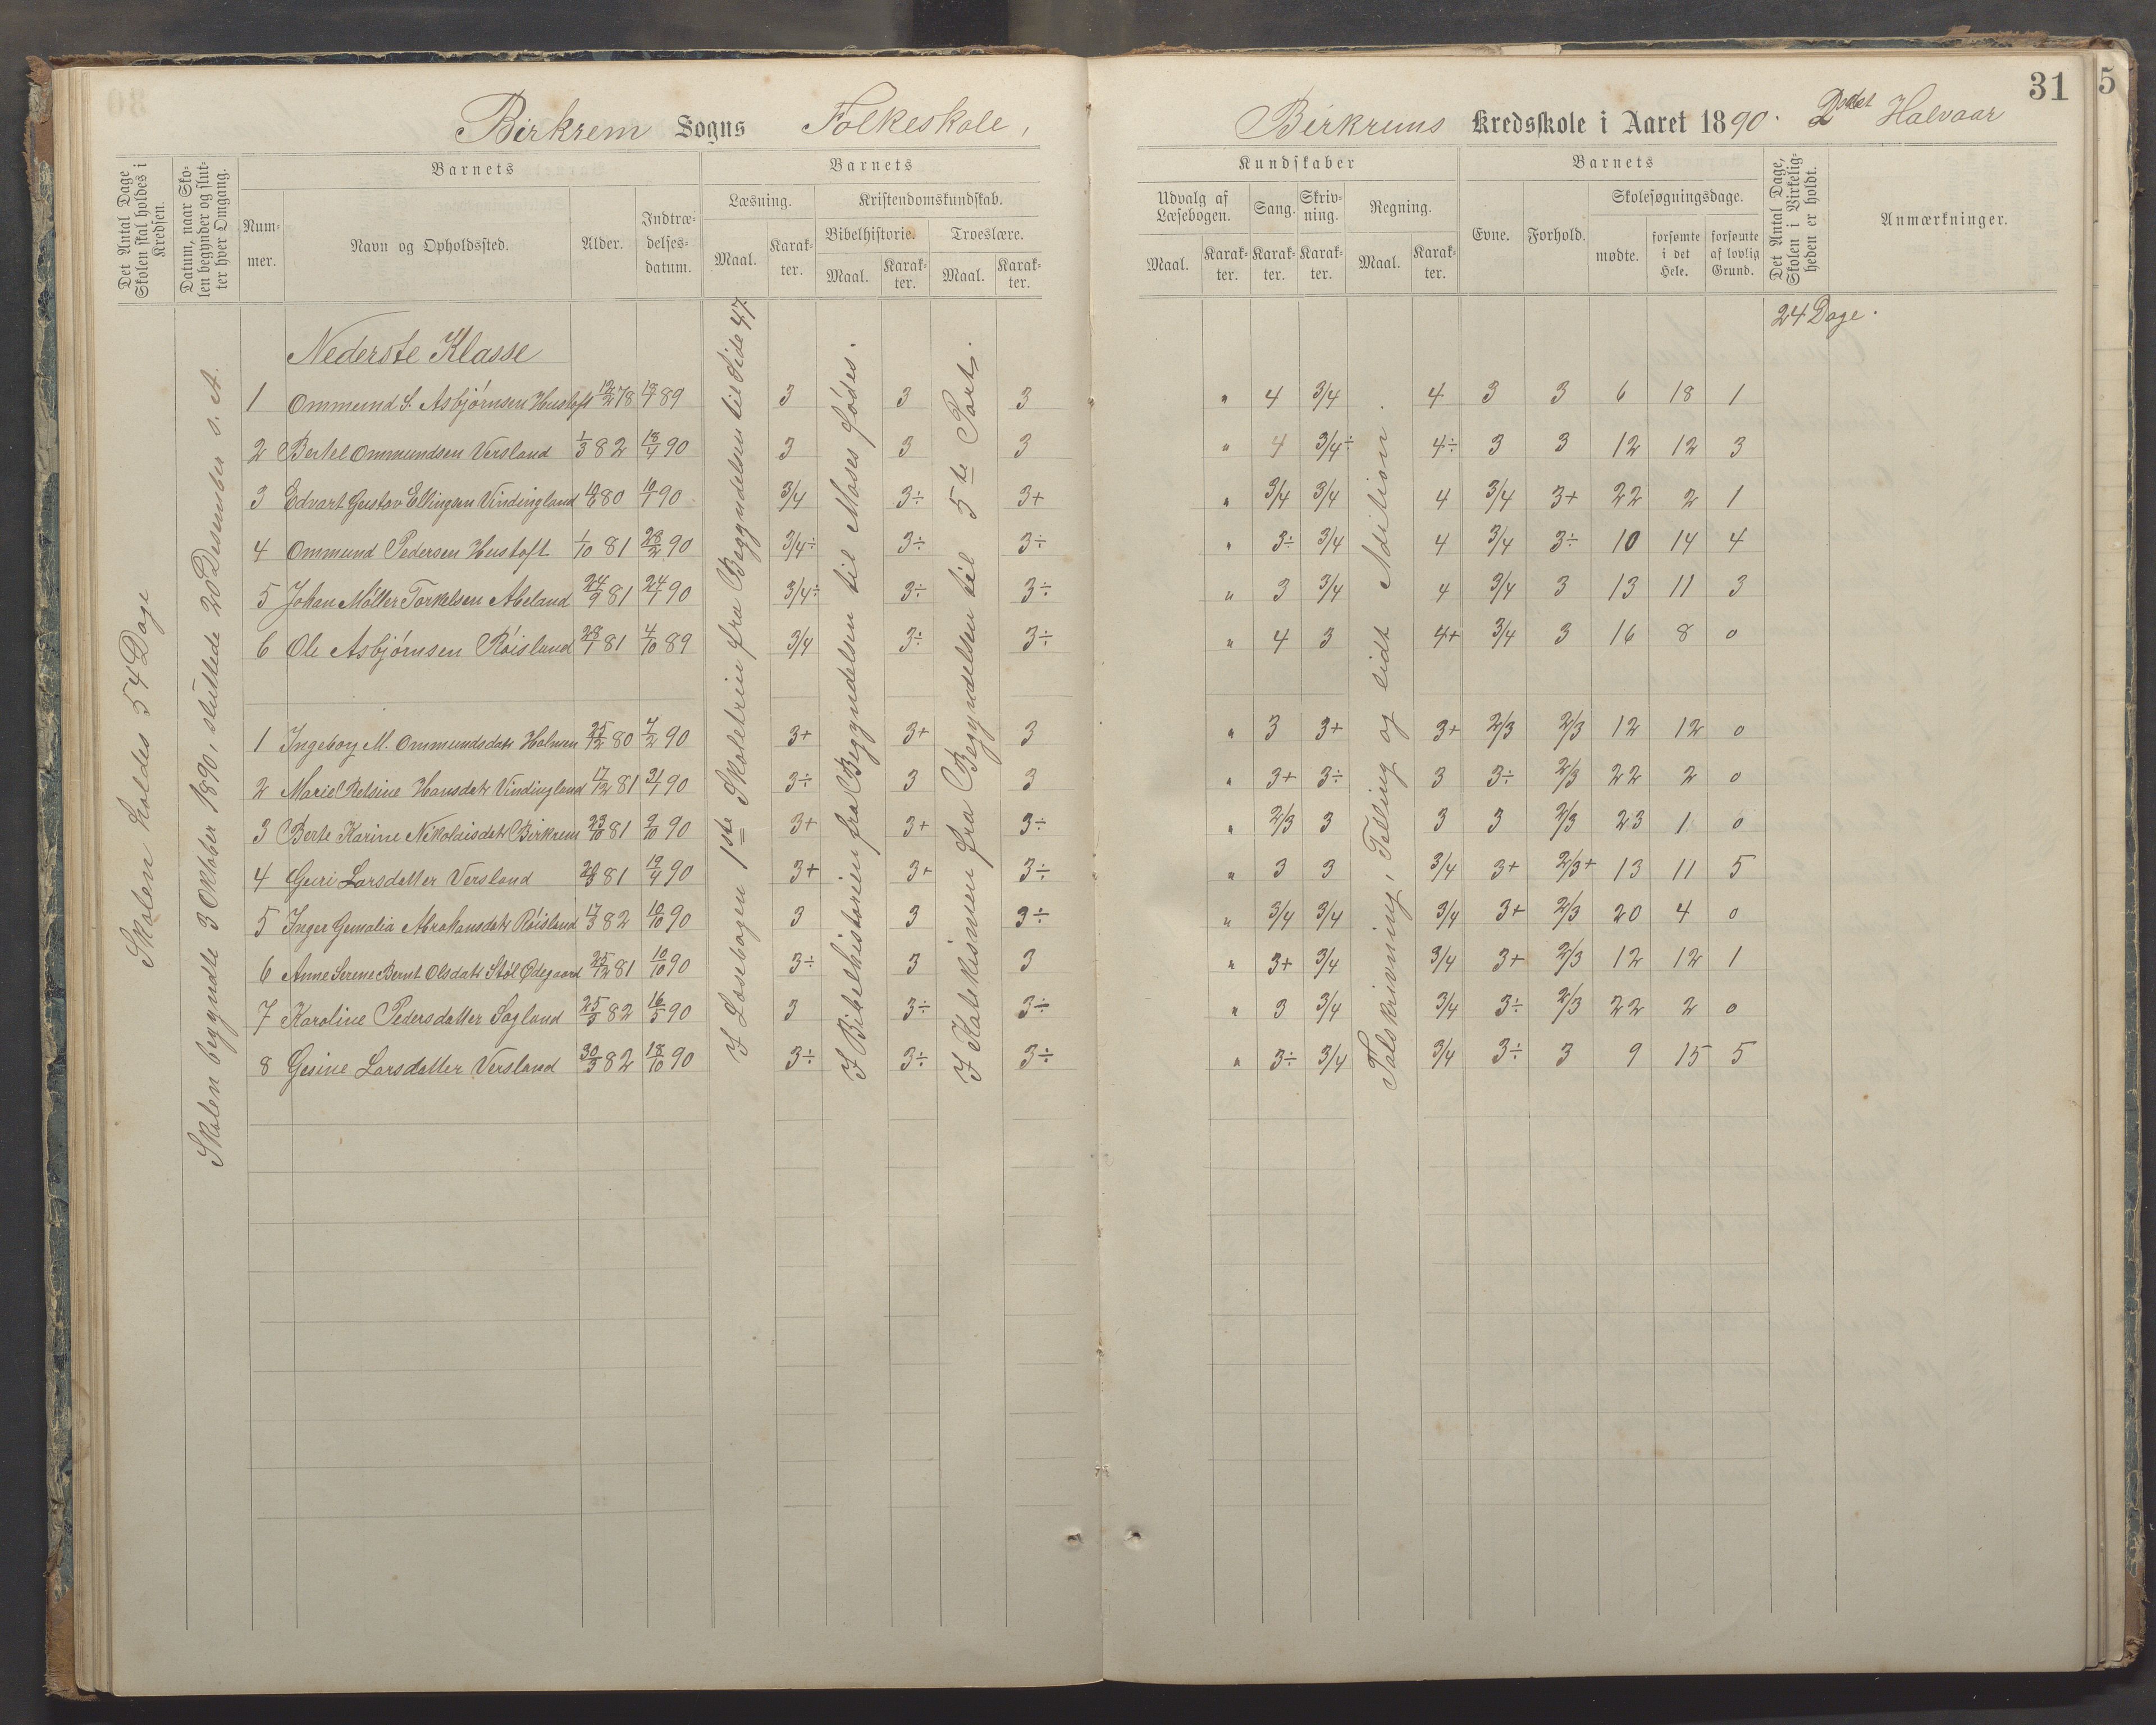 Birkrem Sogns Folkeskole,
Birkrems Kredsskole i Aaret 1890. 2det Halvaar
31
5
Det Antal Dage Skolen skal holdes i Kredsen.
Datum, naar Skolen begynder og slutter hver Omgang.
Barnets
Nummer.
Navn og Opholdssted.
Alder.
Indtrædelsesdatum.
Barnets
Læsning.
Maal.
Karakter.
Kristendomskundskab.
Bibelhistorie.
Maal.
Karakter.
Troeslære.
Maal.
Karakter.
Kundskaber
Udvalg af Læsebogen.
Maal.
Karakter.
Sang.
Karakter.
Skrivning.
Karakter.
Regning.
Maal.
Karakter.
Barnets
Evne.
Forhold.
Skolesøgningsdage.
mødte.
forsømte i det Hele.
forsømte af lovlig Grund.
Det Antal Dage, Skolen i Virkeligheden er holdt.
Anmærkninger.
24 Dage.
Skolen holdes 54 Dage
Skolen begyndte 3 Oktober 1890, sluttede 20 Desember s. A.
I Læsebogen 1ste Skoletrin fra Begyndelsen til Side 47
I Bibelhistorien fra Begyndelsen til Moses fødes.
I Katekismen fra Begyndelsen til 5te Part.
Talskrivning, Telling og lidt Adition.
Nederste Klasse
1 Ommund S. Asbjørnsen Hustoft 12/2 78 18/7 89 3 3 3 " 4 3/4 4 3 3 6 18 1
2 Bertel Ommundsen Versland 1/3 82 18/4 90 3 3 3 " 4 3/4÷ 4÷ 3 3 12 12 3
3 Edvart Gustav Ellingsen Vindingland 80 90 3/4 3÷ 3+ " 3/4 3/4 4 3/4 3+ 22 2 1
4 Ommund Pedersen Hustoft 1/10 81 28/2 90 3/4÷ 3÷ 3÷ " 3÷ 3/4 4 3/4 3÷ 10 14 4
5 Johan Møller Torkelsen Abeland 24/9 81 24/1 90 3/4÷ 3÷ 3÷ " 3 3/4 4 3/4 3 13 11 3
6 Ole Asbjørnsen Røisland 28/7 81 4/10 89 3/4 3÷ 3÷ " 4 3 4+ 3/4 3 16 8 0
1 Ingeborg M. Ommundsdatr Holmen 25/12 80 7/2 90 3+ 3+ 3 " 3 3+ 3+ 2/3 2/3 12 12 0
2 Marie Retsine Hansdatr Vindingland 17/2 81 90 3÷ 3 3 " 3+ 3÷ 3 3÷ 2/3 22 2 0
3 Berte Karine Nikolaisdatr Birkrem 23/10 81 2/10 90 3+ 3+ 3÷ " 2/3 3 3 3 2/3 23 1 0
4 Guri Larsdatter Versland 81 90 3+ 3+ 3÷ " 3 3 3/4 3+ 2/3+ 13 11 5
5 Inger Gemalia Abrahansdatr Røisland 17/3 82 10/10 90 3 3 3÷ " 3/4 3/4 3/4 3+ 2/3 20 4 0
6 Anne Serene Bernt Olsdatr Støl Ødegaard 25/12 81 10/10 90 3÷ 3 3 " 3+ 3/4 3/4 3+ 2/3 12 12 1
7 Karoline Pedersdatter Sagland 25/3 82 16/5 90 3 3÷ 3÷ " 3 3/4 3/4 3÷ 2/3 22 2 0
8 Gesine Larsdatter Versland 30/3 82 18/10 90 3÷ 3÷ 3÷ " 3÷ 3/4 3/4 3÷ 3 9 15 5